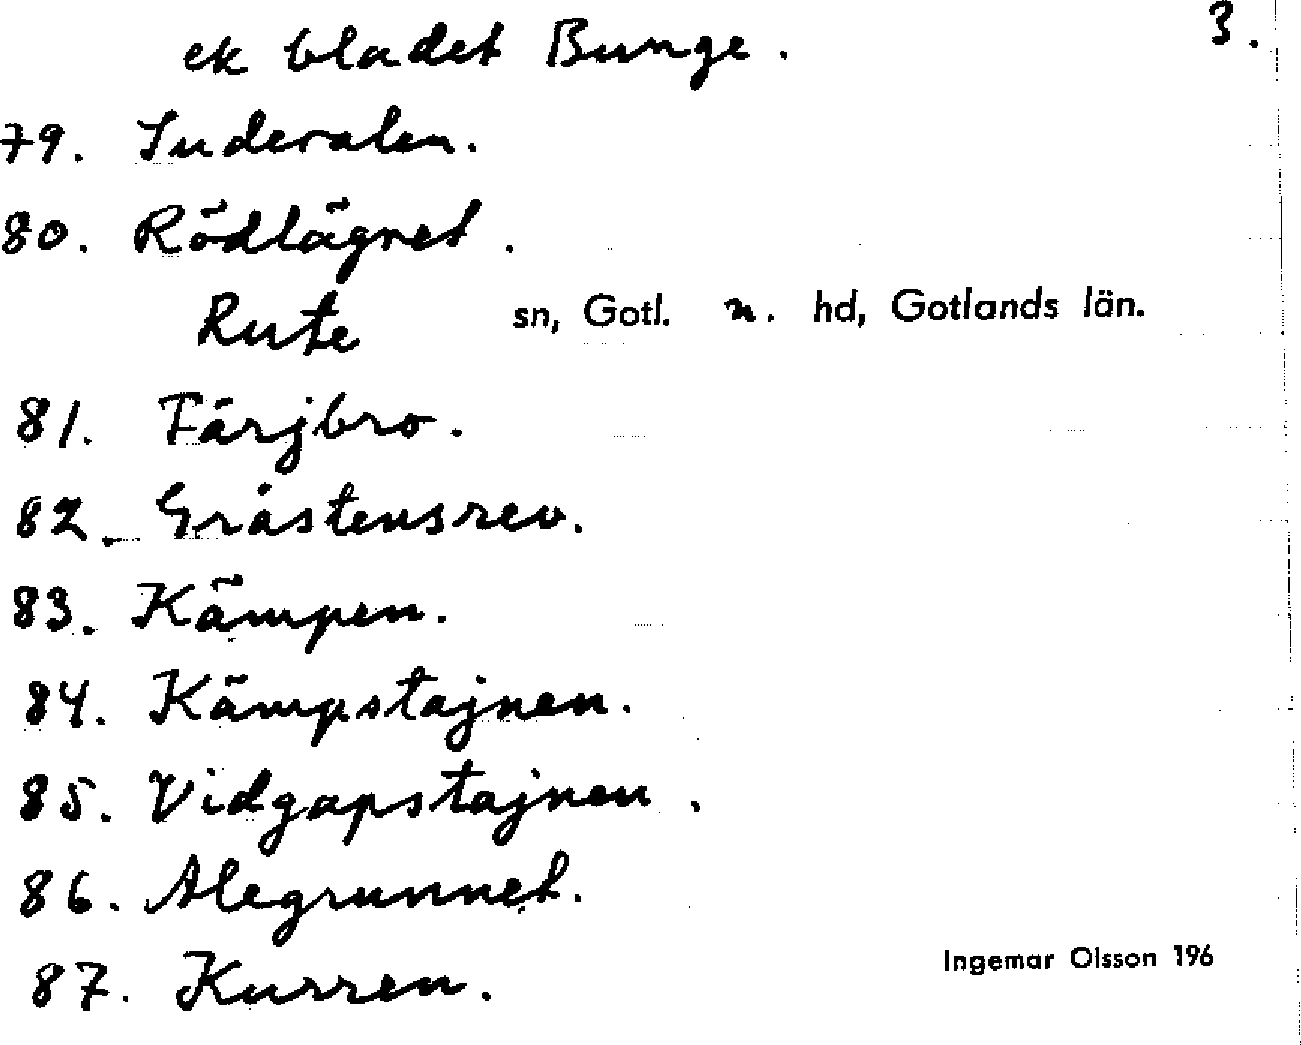 ek bladet Bunge. 3.
79. Suderalen.
80. Rödlägret.
Rute sn, Gotl. n. hd, Gotlands län.
81. Färjbro.
82. Gråstensrev.
83. Kämpen.
84. Kämpstajnen.
85. Vidgapstajnen.
86. Alegrunnet.
87. Kurren.
Ingemar Olsson 196